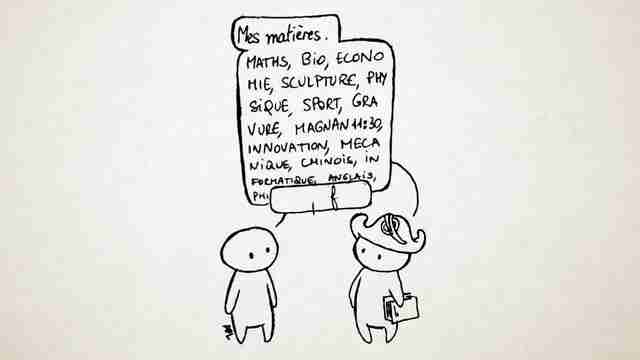 Mes matières.
MATHS, BIO, ECONO
MIE, SCULPTURE, PHY
SIQUE, SPORT, GRA
VURE, MAGNAN 11:30,
INNOVATION, MECA
NIQUE, CHINOIS, IN
FORMATIQUE, ANGLAIS,